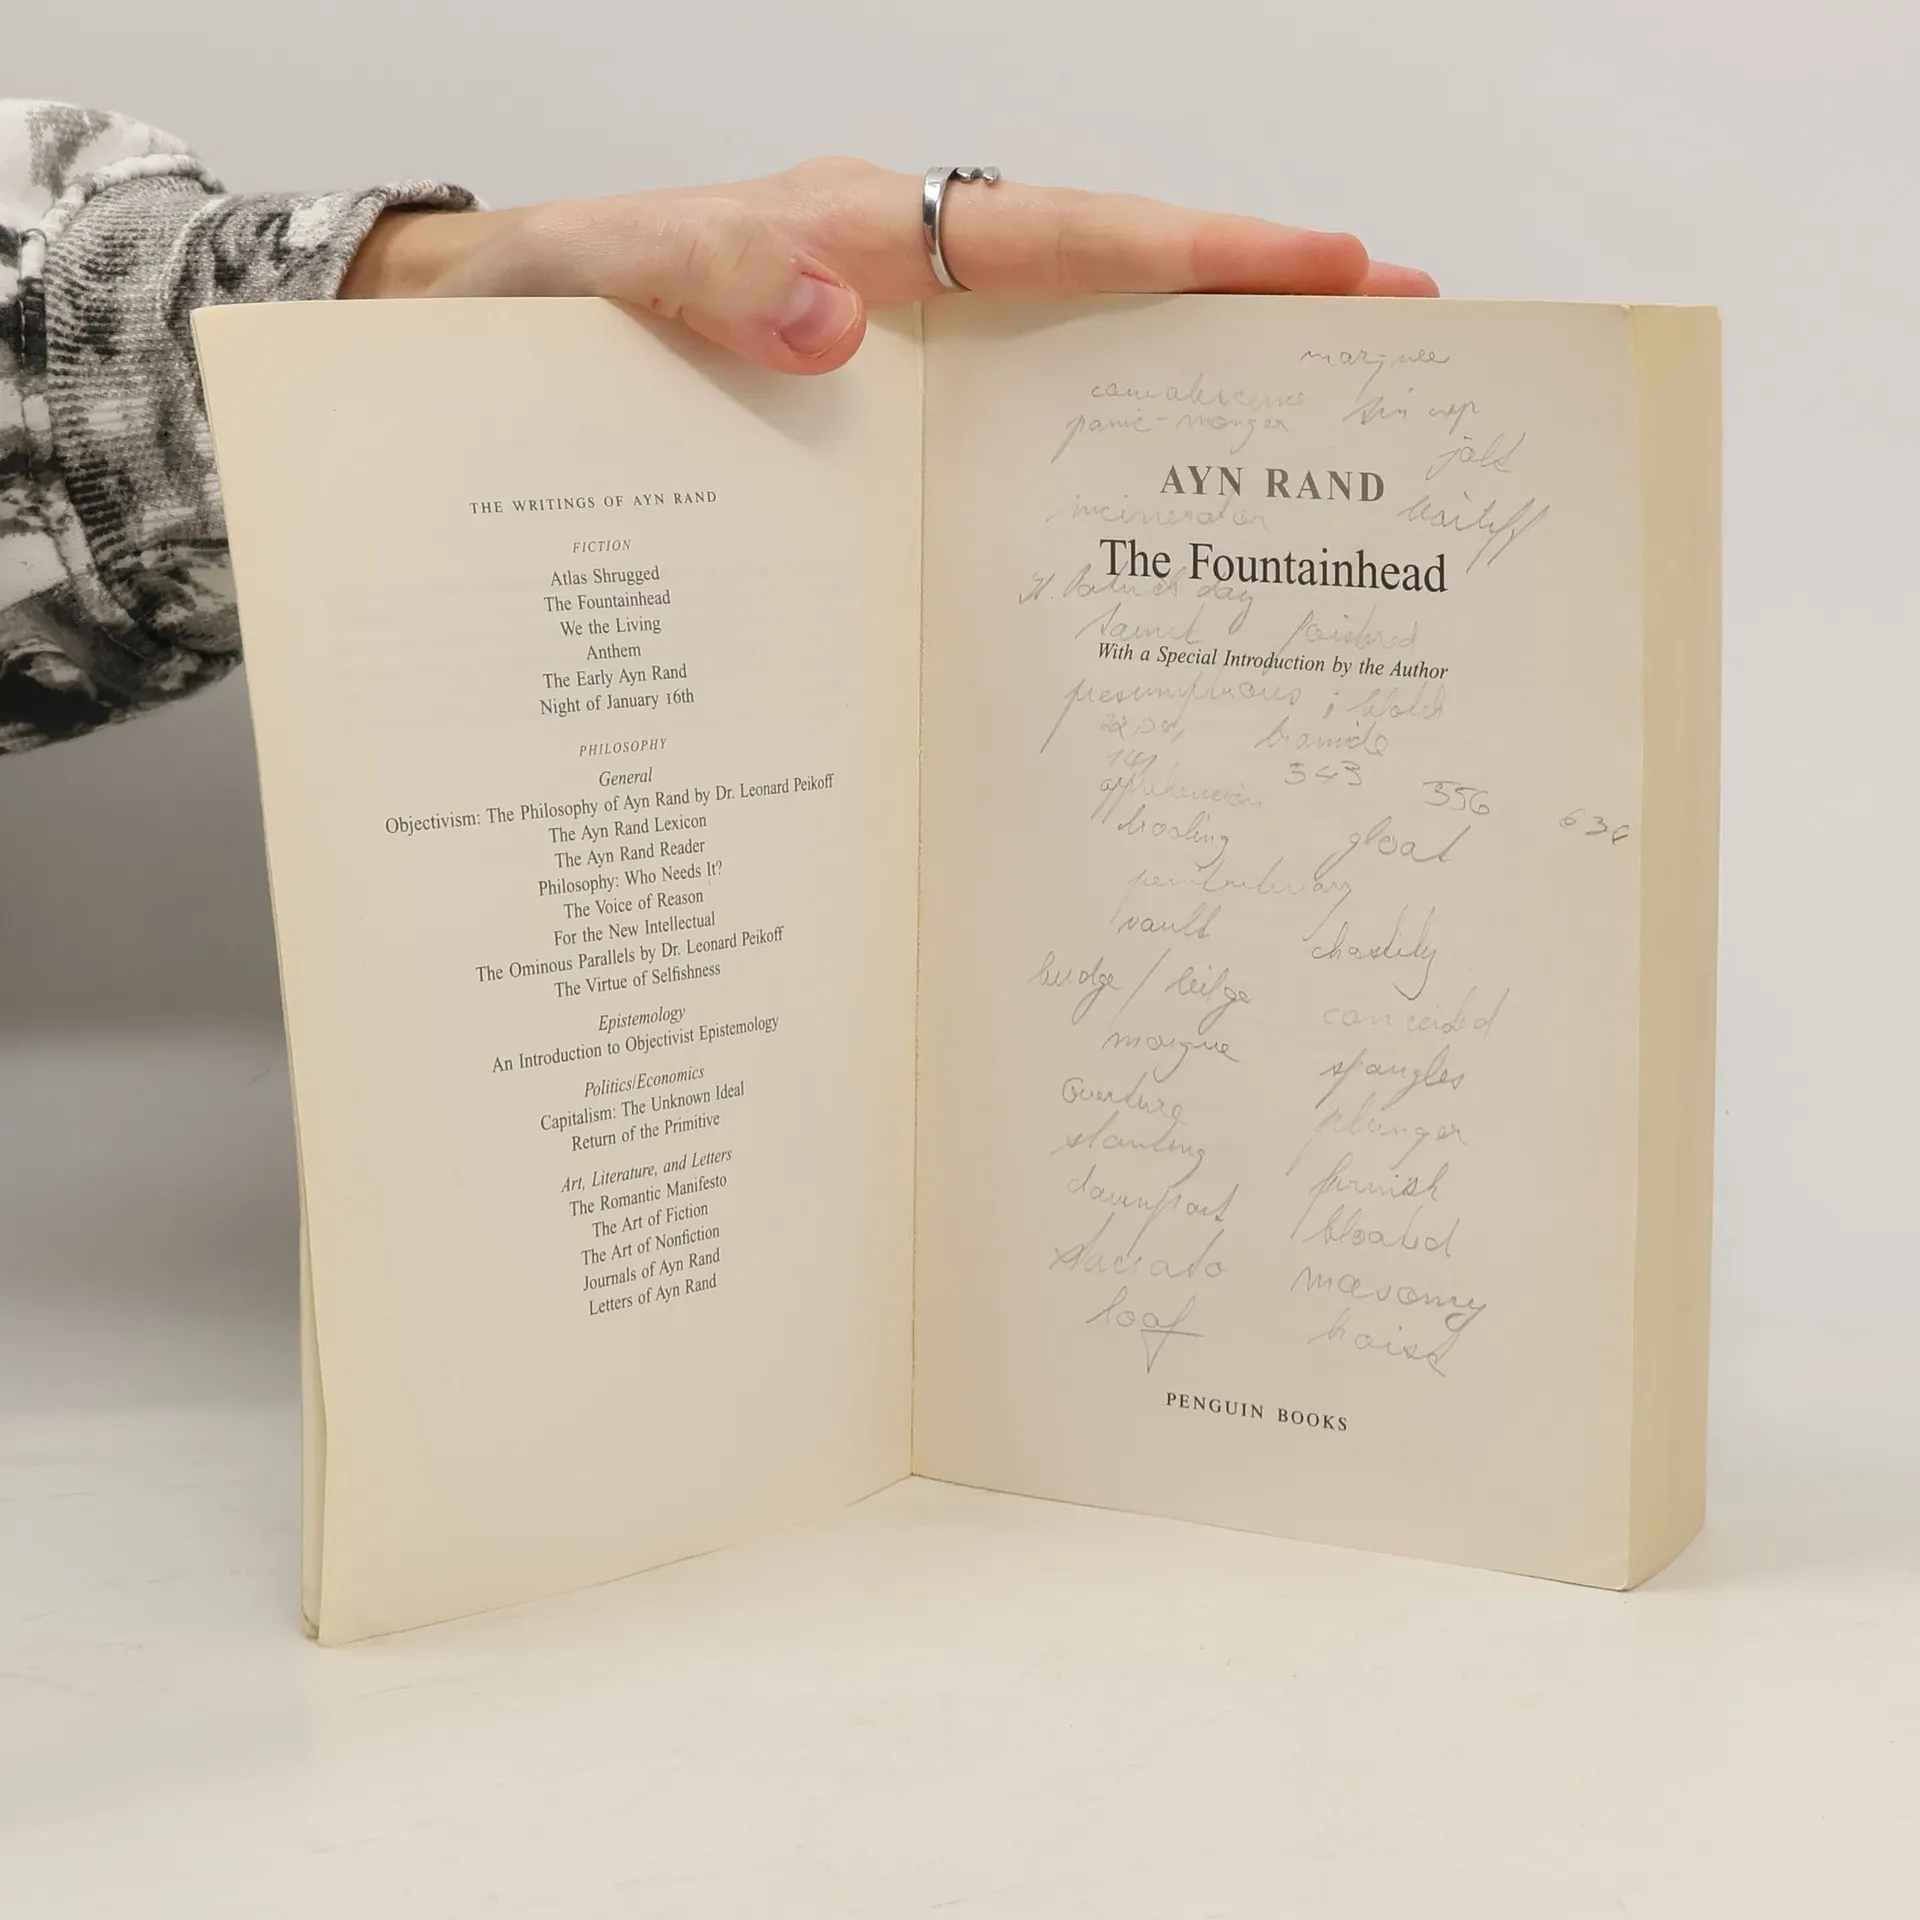 THE WRITINGS OF AYN RAND
FICTION
Atlas Shrugged
The Fountainhead
We the Living
Anthem
The Early Ayn Rand
Night of January 16th
PHILOSOPHY
General
Objectivism: The Philosophy of Ayn Rand by Dr. Leonard Peikoff
The Ayn Rand Lexicon
The Ayn Rand Reader
Philosophy: Who Needs It?
The Voice of Reason
For the New Intellectual
The Ominous Parallels by Dr. Leonard Peikoff
The Virtue of Selfishness
Epistemology
An Introduction to Objectivist Epistemology
Politics/Economics
Capitalism: The Unknown Ideal
Return of the Primitive
Art, Literature, and Letters
The Romantic Manifesto
The Art of Fiction
The Art of Nonfiction
Journals of Ayn Rand
Letters of Ayn Rand
panic-monger
jolt
AYN RAND
incinerator
The Fountainhead
day
With a Special Introduction by the Author
presumptuous
343 556
gloat
vault chastity
budge /
morgue spangles
overture plunger
slanting furnish
davenport bloated
staccato masonry
loaf hoist
PENGUIN BOOKS